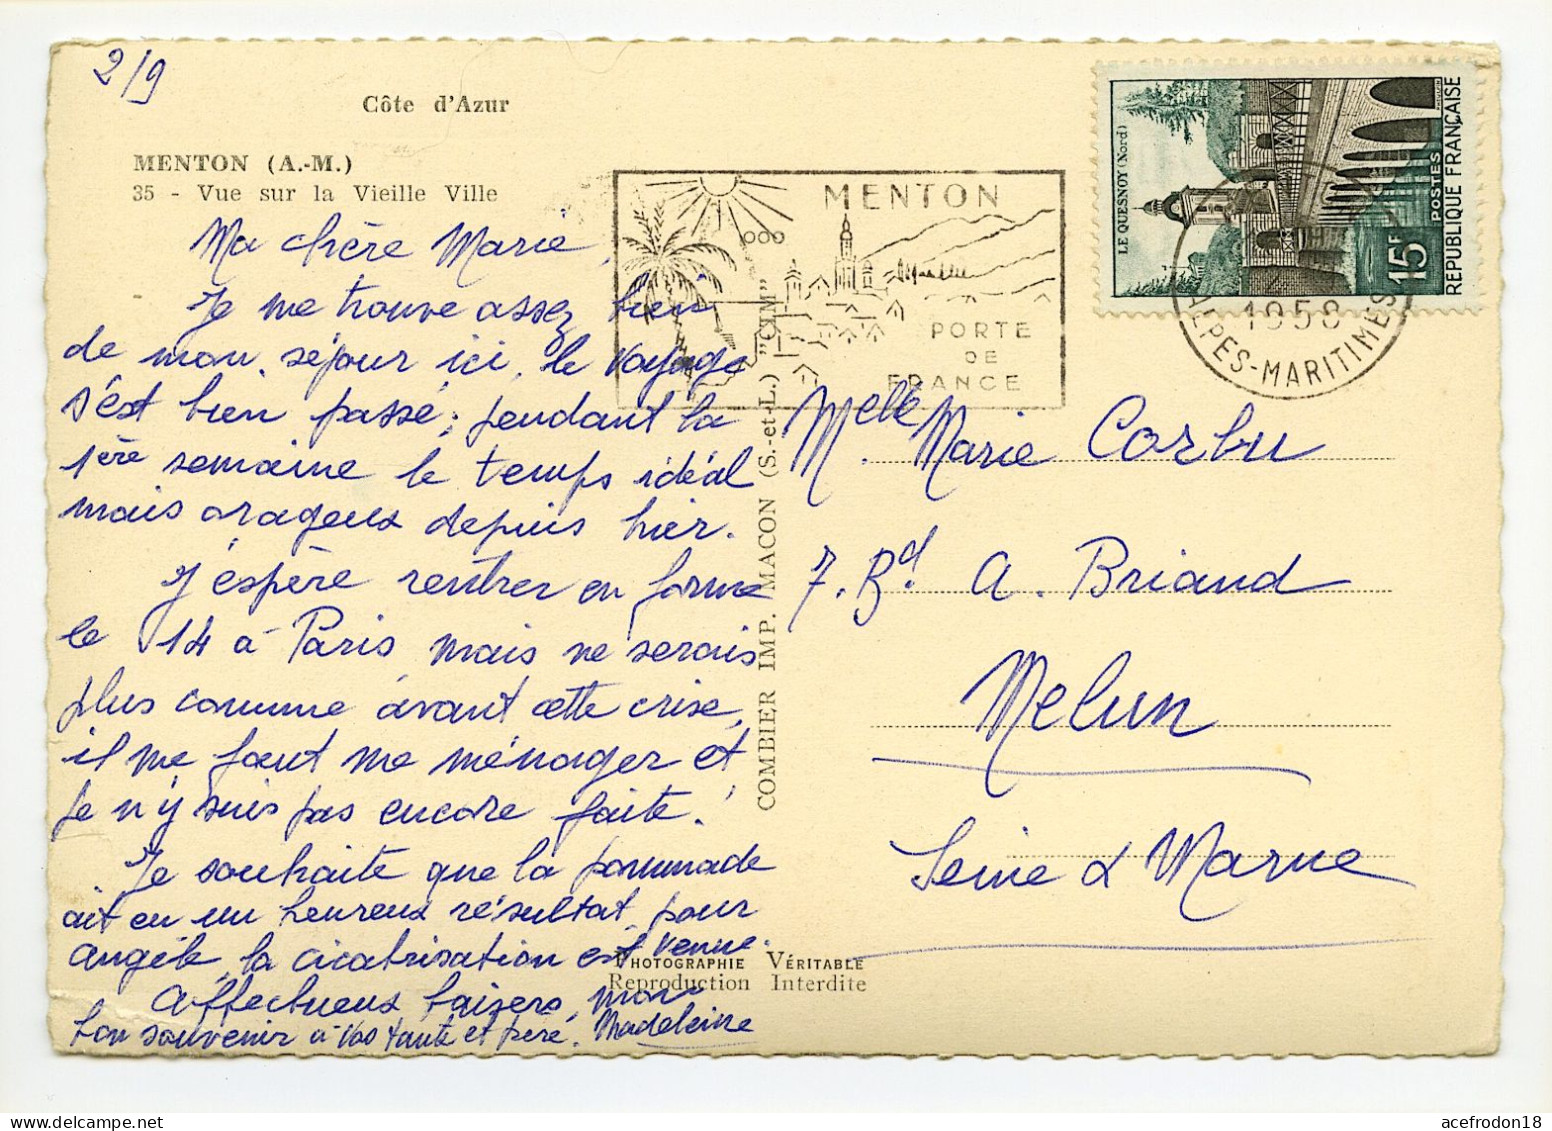 2/9
Côte d'Azur
MENTON (A.-M.)
35 - Vue sur la Vieille Ville
Ma chère Marie,
Je me trouve assez bien
de mon séjour ici, le voyage
s'est bien passé; pendant la
1ère semaine le temps idéal
mais orageux depuis hier.
J'espère rentrer en forme
le 14 à Paris mais ne serais
plus comme avant cette crise,
il me faut me ménager et
je n'y suis pas encore faite!
Je souhaite que la pommade
ait eu un heureux résultat pour
Angèle, la cicatrisation est venue.
Affectueux baisers, mon
bon souvenir à vos tante et père. Madeleine
COMBIER IMP. MACON (S.-et-L.) "CIM"
PHOTOGRAPHIE VÉRITABLE
Reproduction Interdite
MENTON
PORTE
DE
FRANCE
LE QUESNOY (Nord)
15F
POSTES
REPUBLIQUE FRANÇAISE
1958
ALPES-MARITIMES
Melle
M. Marie Corbu
7. Bd. A. Briand
Melun
Seine & Marne
acefrodon18